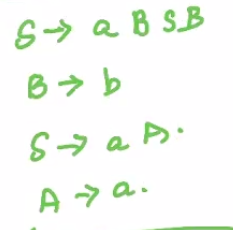 S → a B S B
B → b
S → a A.
A → a.